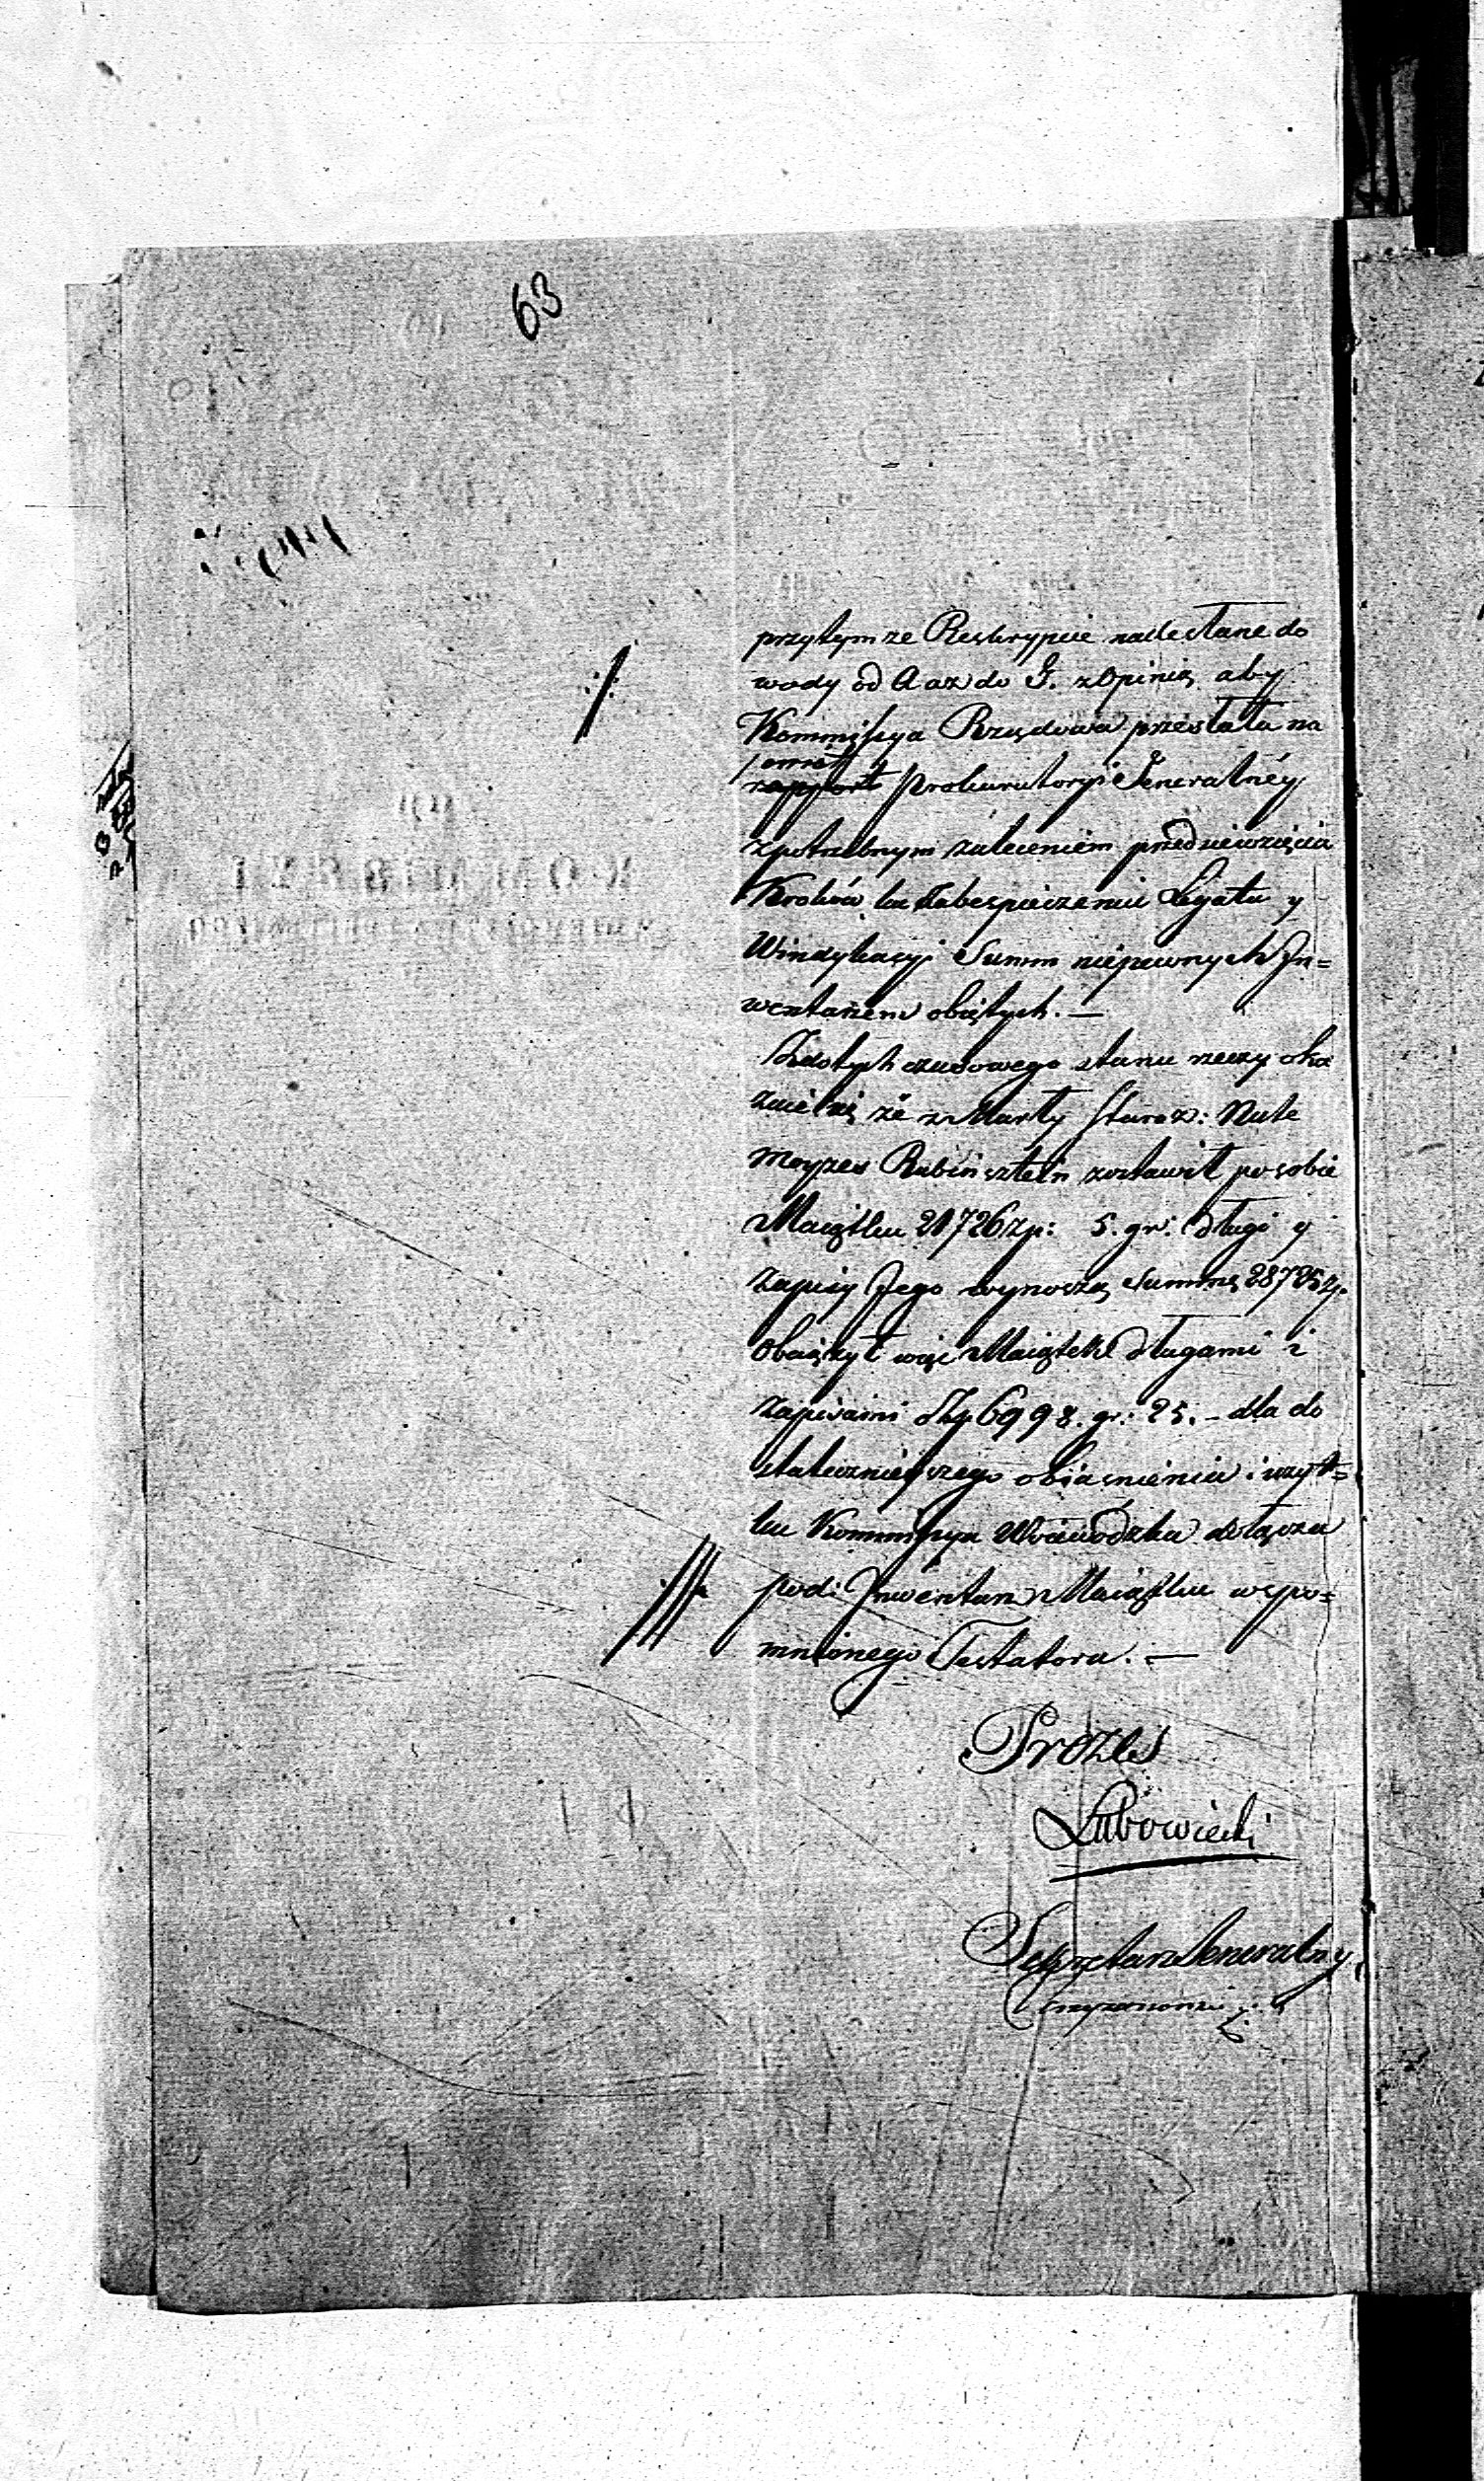 63
przytym ze Reskrypcie nadesłane do
wody od A az do G. z Opinią aby
Kommissya Rządowa przesłała na
powrót
rapport Prokuratoryi Jeneralnéy
z potrzebnym zaleceniem przedsiewzięcia
Kroków ku zabespieczeniu Legatu y
Windykacyi Summ niepewnych In=
wentarzem obiętych. —
Z dotychczasowego stanu rzeczy oka
zuie się że zMarły Staroz: Nute
Moyzes Rubinsztein zostawił po sobie
Maiątku 21726 zp: 5. gr: długi y
zapisy Jego wynoszą Summę 28725 zp.
Obciążył więc Maiątek długami i
zapisami o Zp 6998. gr: 25. - dla do
statecznieyszego obiasnienia i uzyt=
ku Kommissya Woiewódzka dołącza
pod: Inwentarz Maiątku wspo=
mnionego Testatora. —
Prezes
Lubowiecki
Sekretarz Jeneralny